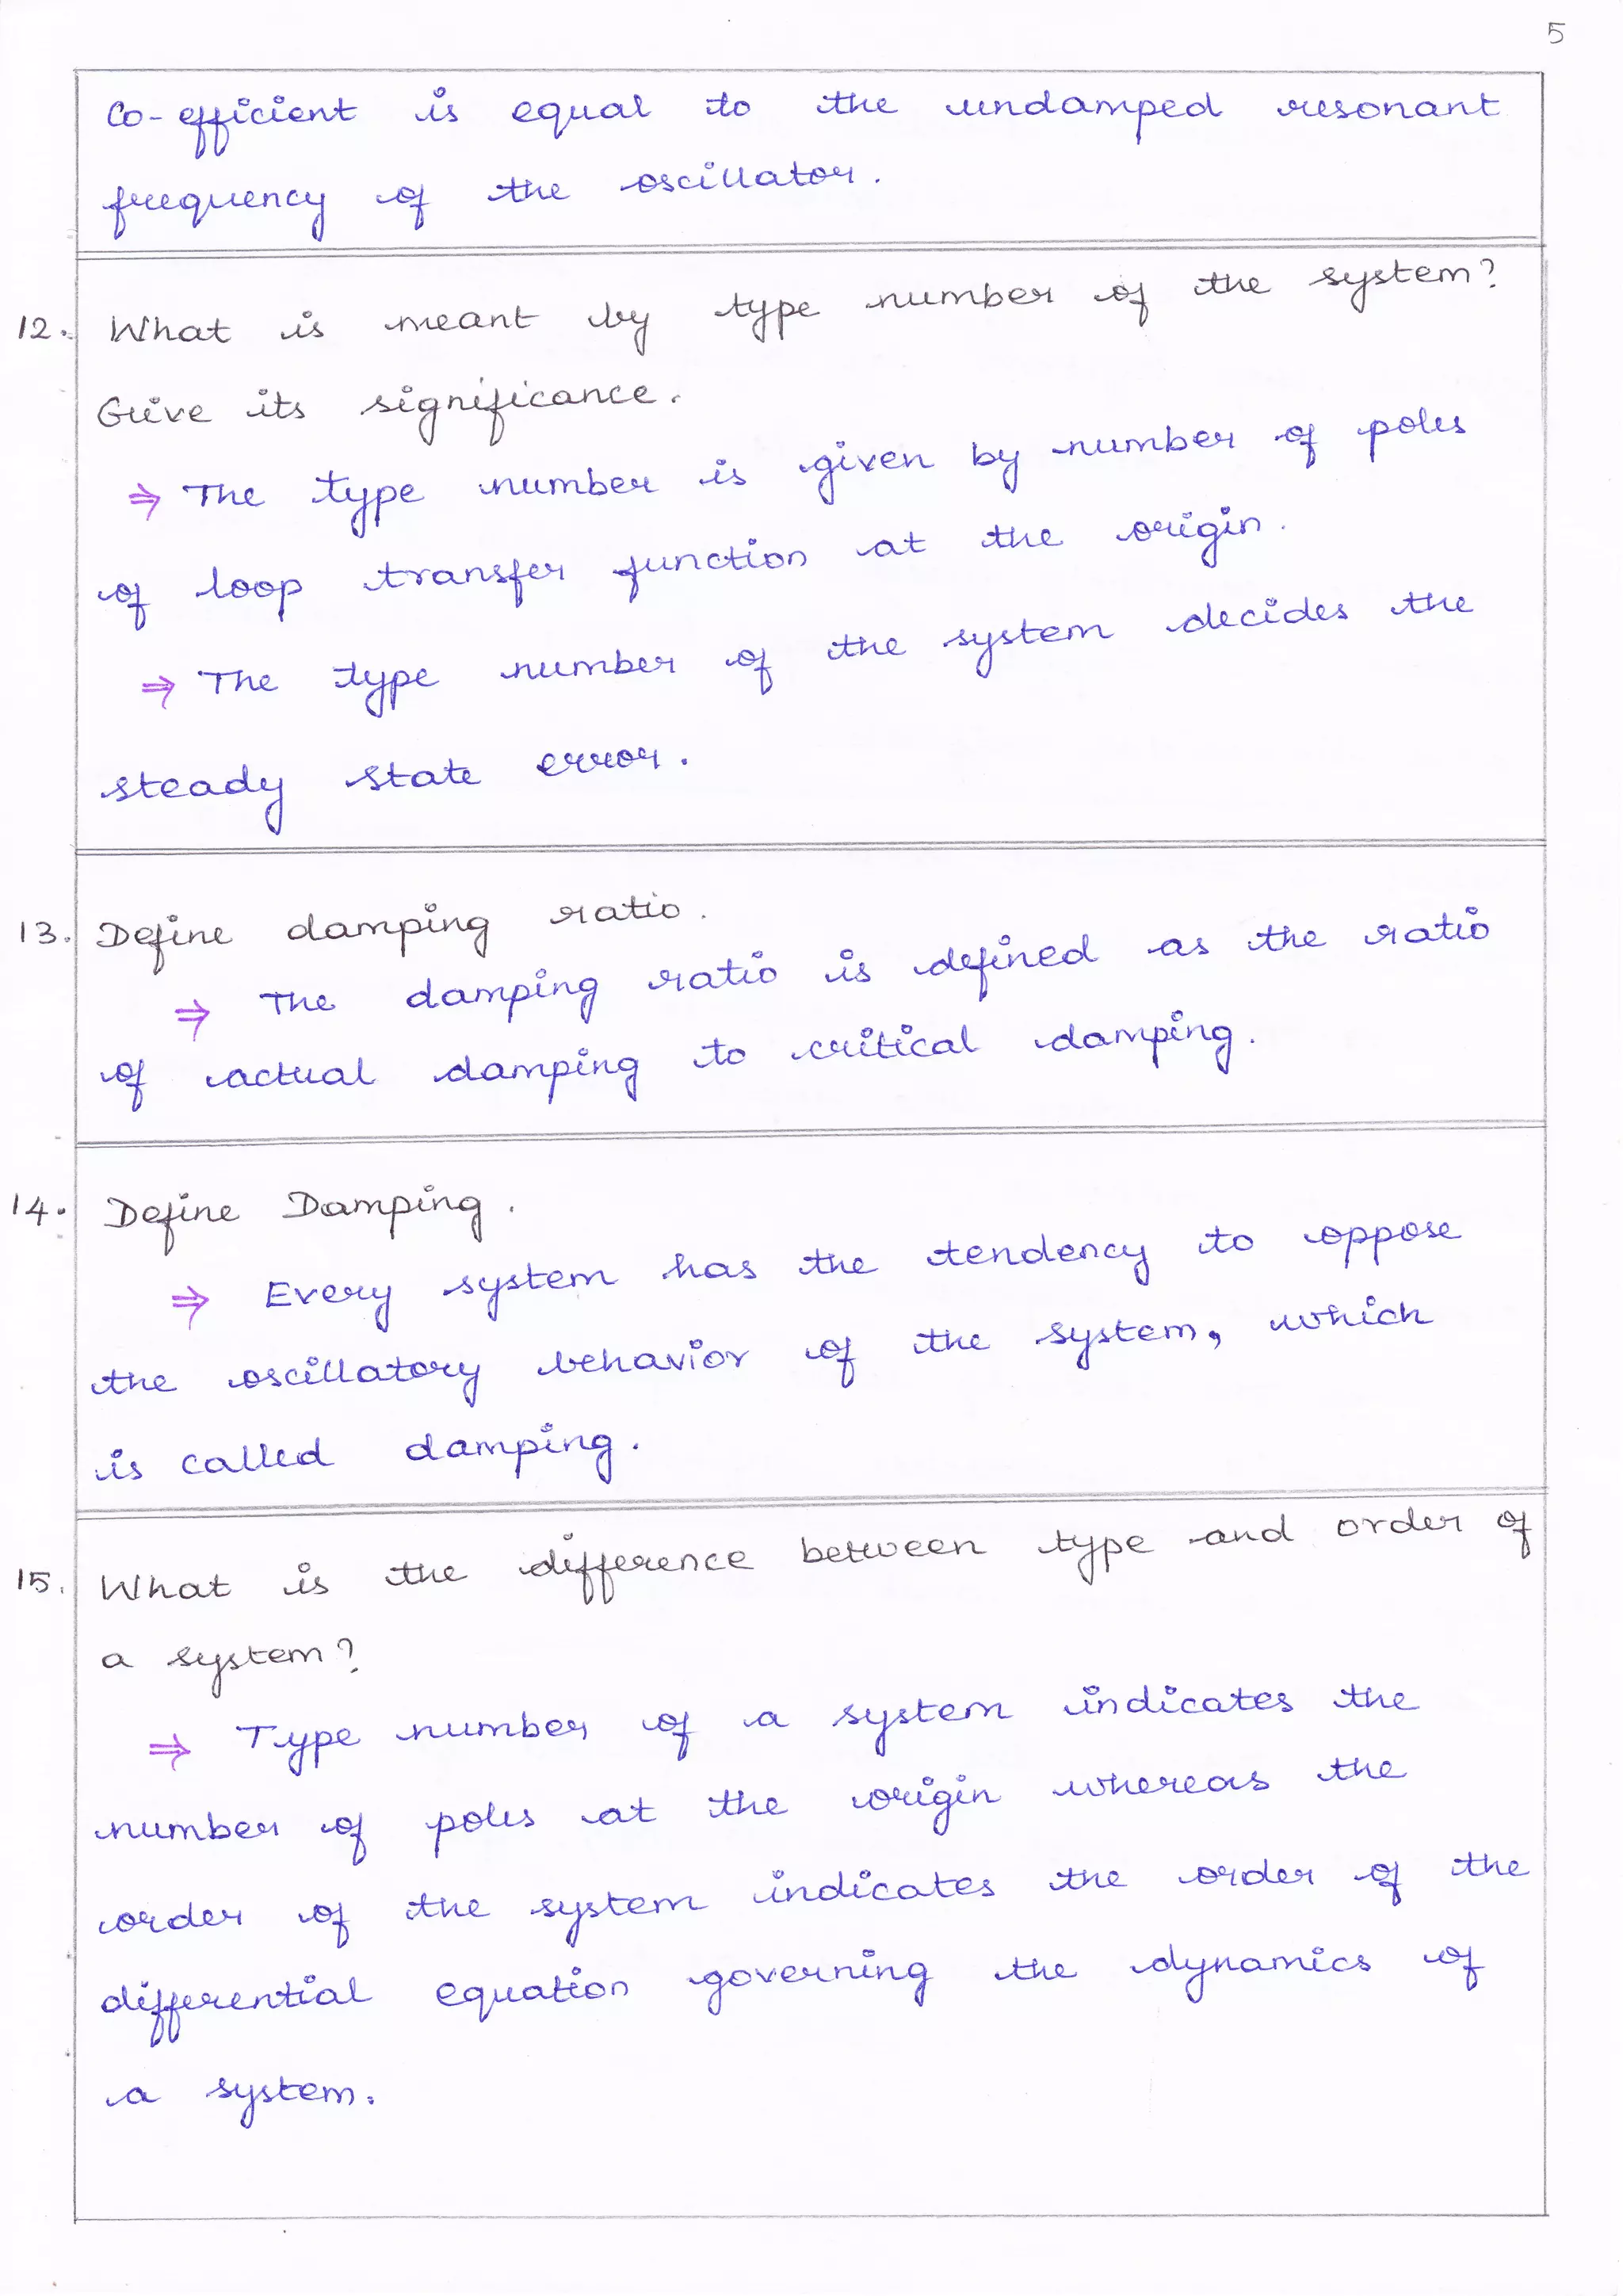 5
Co-efficient is equal to the undamped resonant
frequency of the oscillator.
12. What is meant by type number of the system?
Give its significance.
⇒ The type number is given by number of poles
of loop transfer function at the origin.
⇒ The type number of the system decides the
steady state error.
13. Define damping ratio.
⇒ The damping ratio is defined as the ratio
of actual damping to critical damping.
14. Define Damping.
⇒ Every system has the tendency to oppose
the oscillatory behavior of the system, which
is called damping.
15. What is the difference between type and order of
a system?
⇒ Type number of a system indicates the
number of poles at the origin whereas the
order of the system indicates the order of the
differential equation governing the dynamics of
a system.